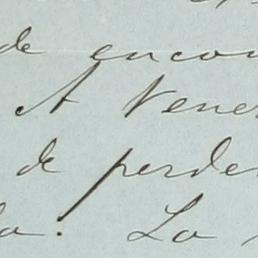 de encon
A Vener
de perder
la. La